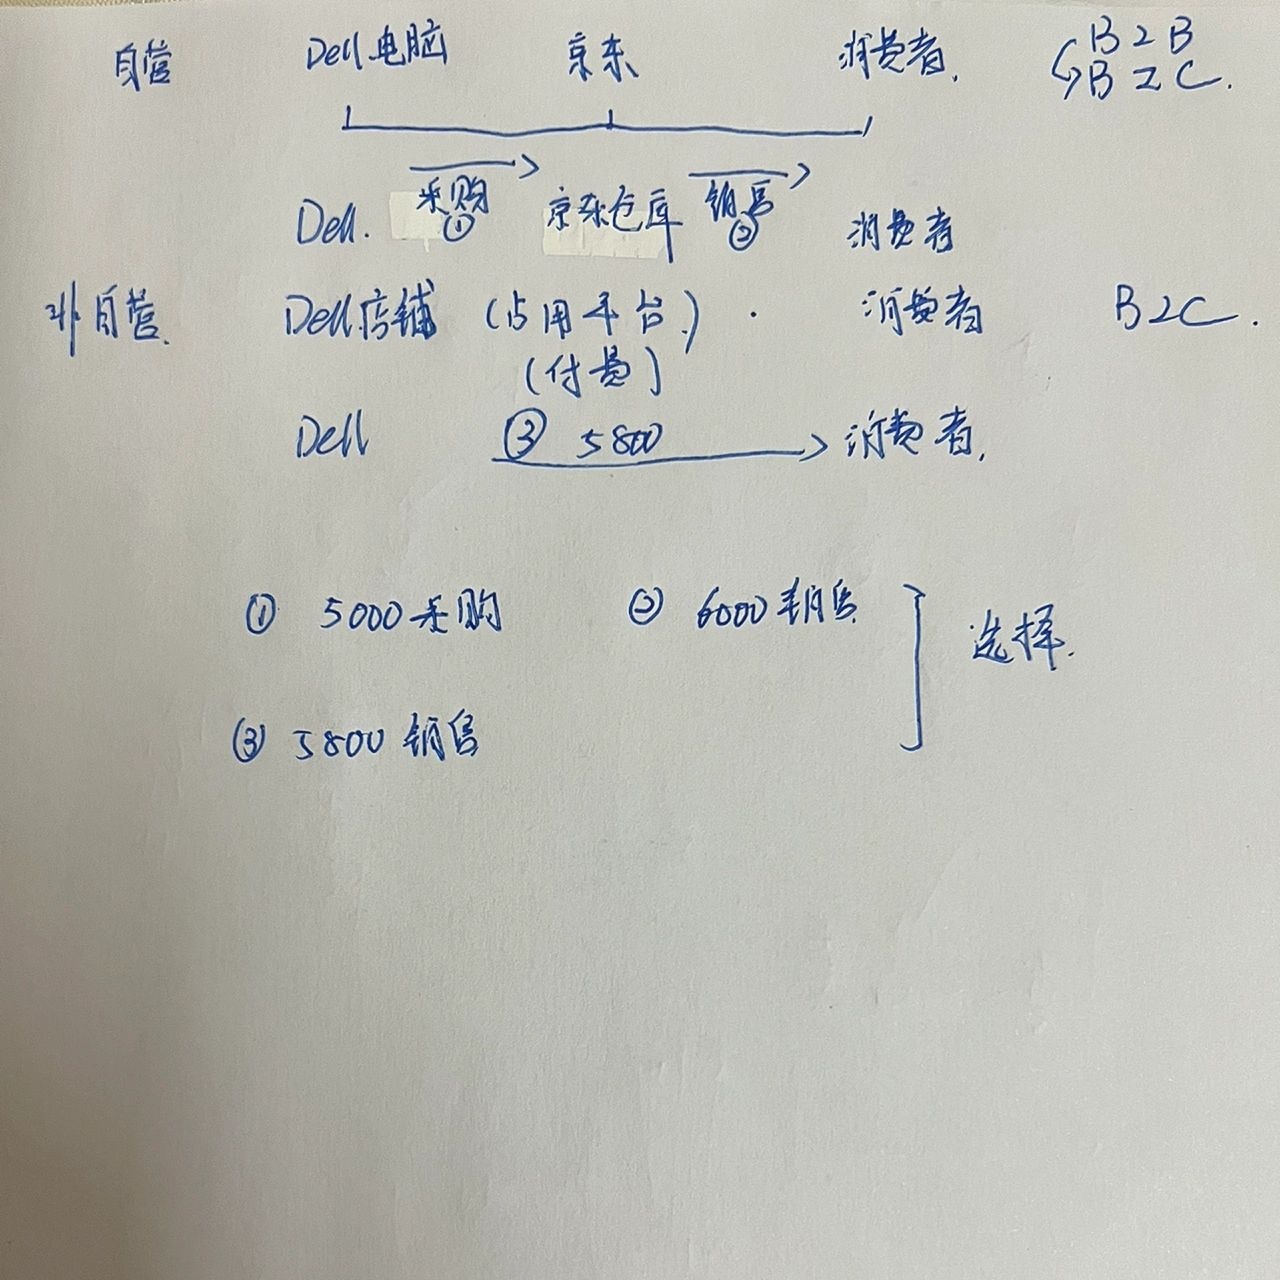 自营 Dell电脑 京东 消费者. B2B
B2C.
采购 销售
Dell. ① 京东仓库 ② 消费者
非自营. Dell店铺 (占用平台) . 消费者 B2C.
(付费)
Dell ③ 5800 消费者.
① 5000采购 ② 6000销售
选择.
③ 5800销售